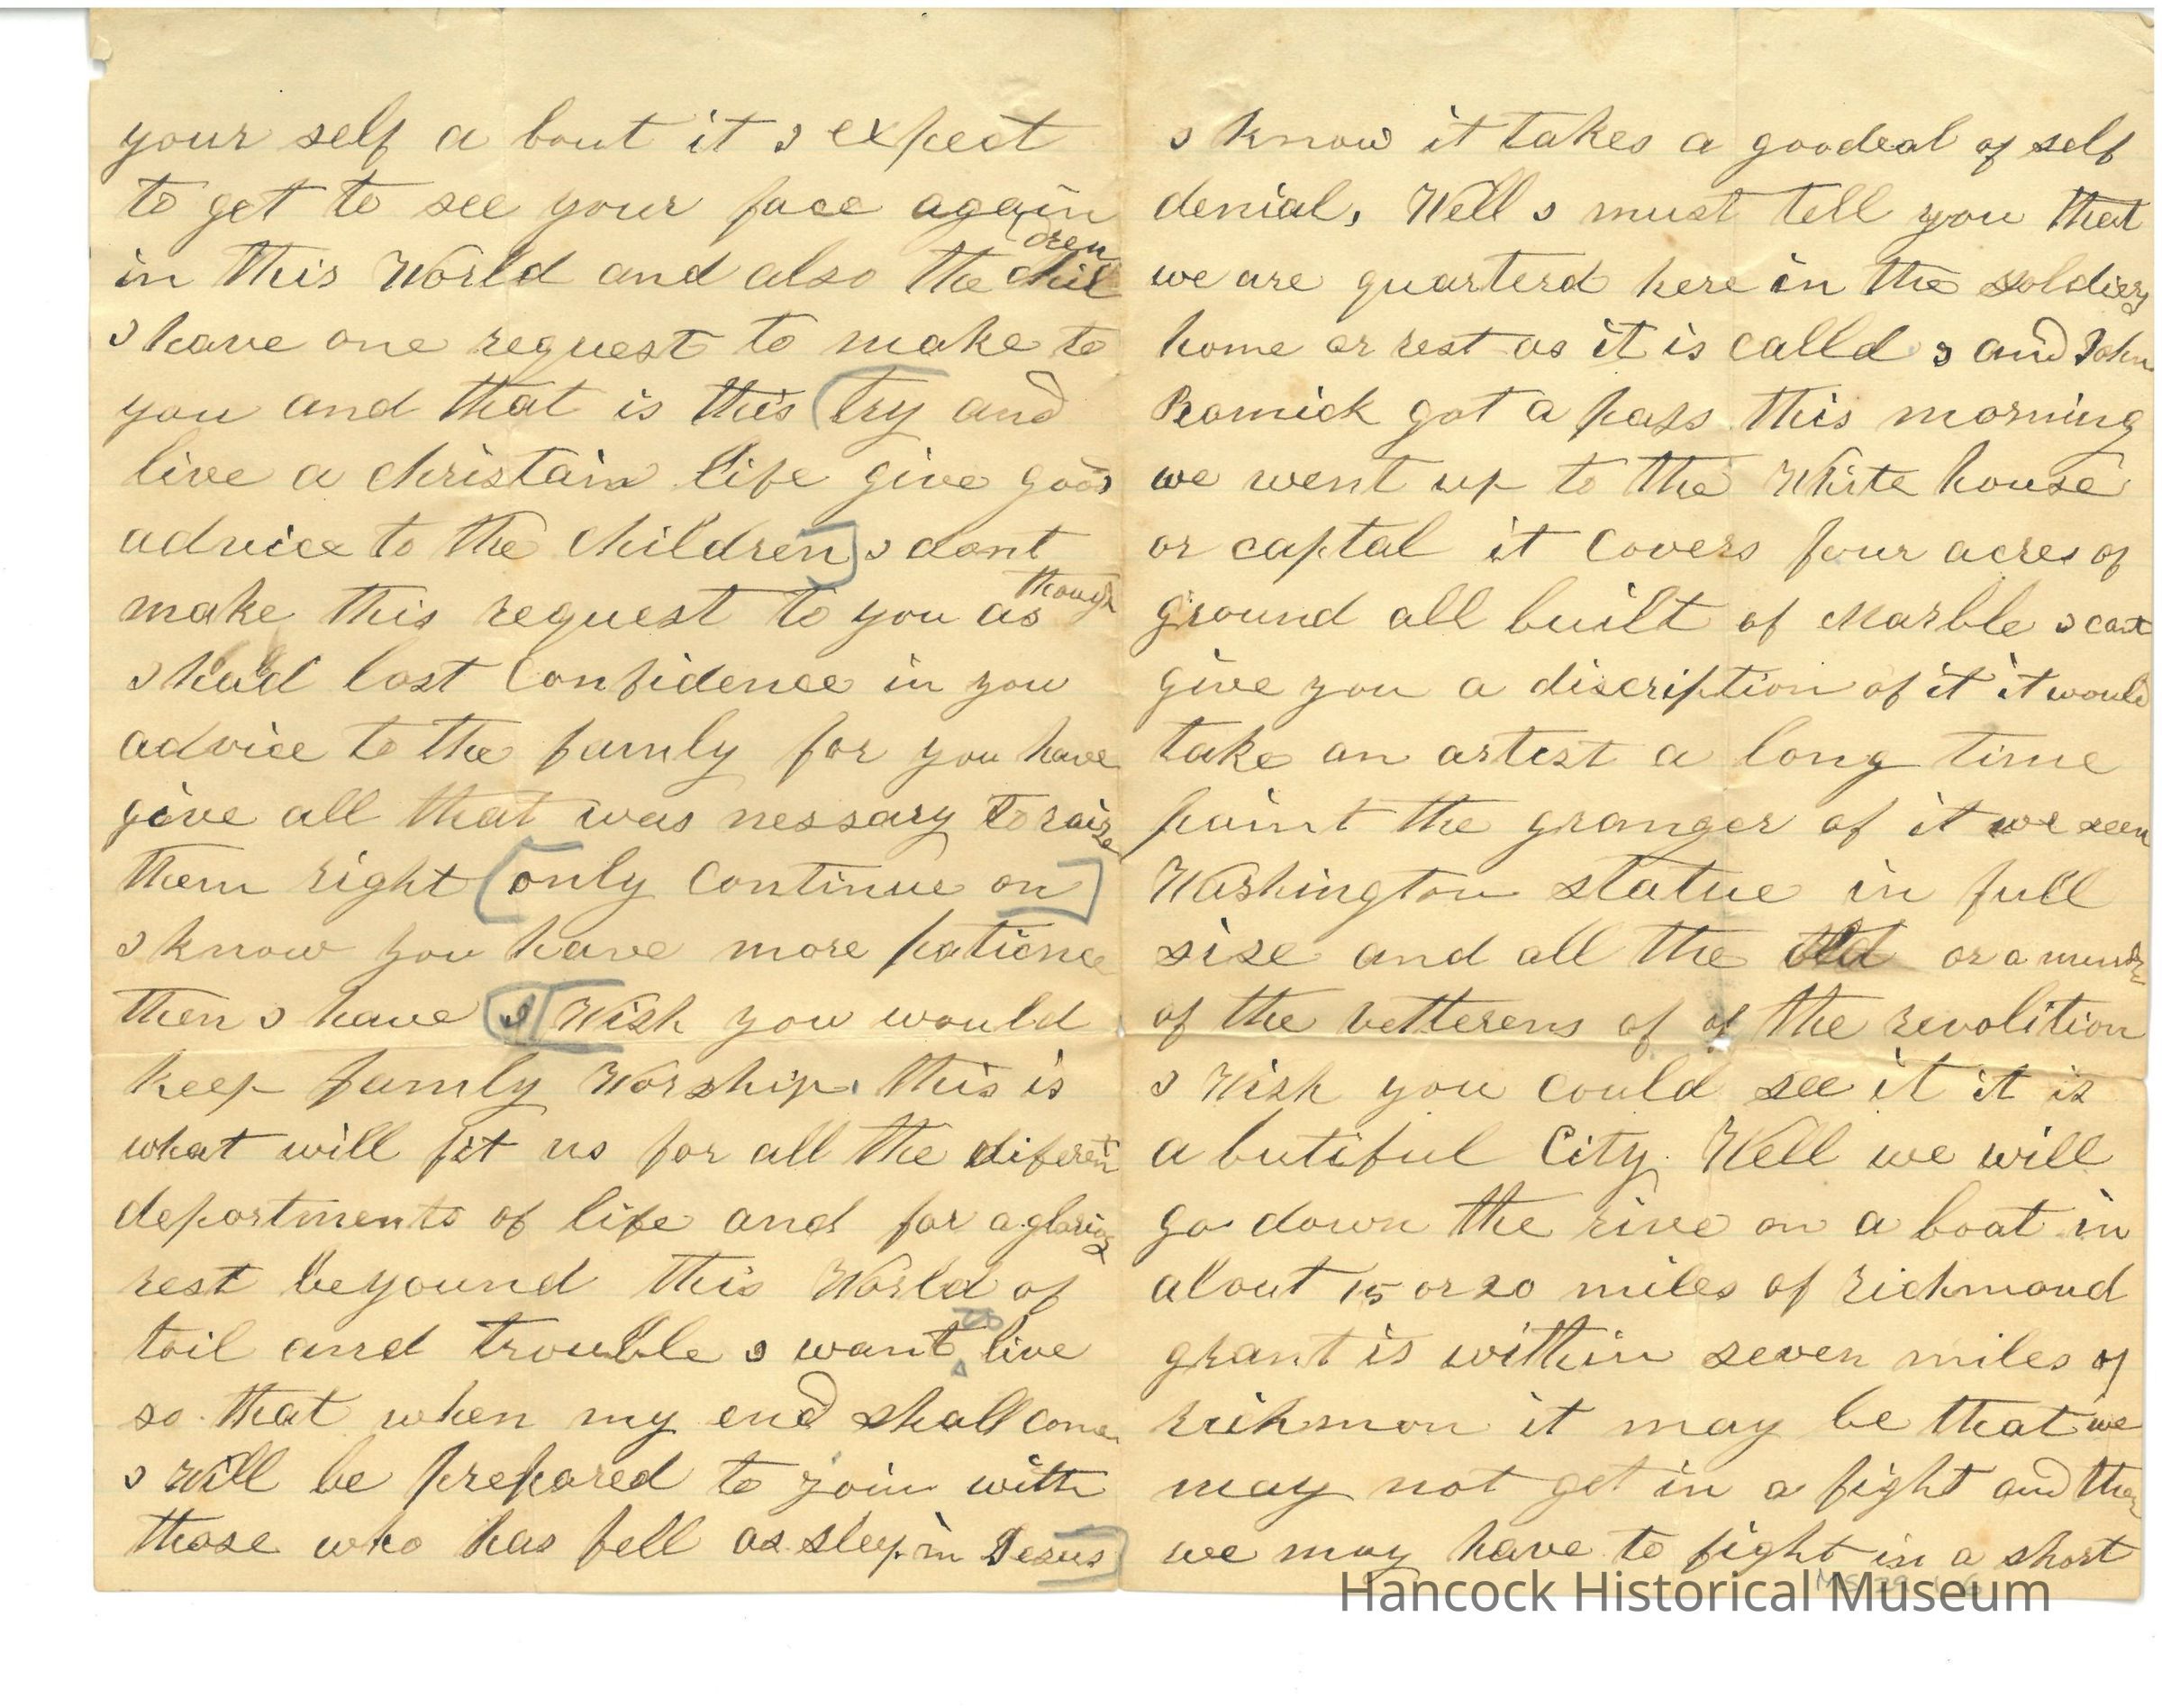 your self a bout it I expect
to get to see your face again
in this World and also the children
I have one request to make to
you and that is this (try and
live a christain life give good
advice to the children] I dont
make this request to you as though
I had lost Confidence in you
advice to the family for you have
give all that was nessary to raise
them right [only Continue on]
I know you have more patience
then I have I Wish you would
keep family Worship. this is
what will fit us for all the diferent
departments of life and for a glorios
rest beyound this World of
toil and trouble I want to live
so that when my end shall come
I will be prepared to join with
those who has fell as sleep in Jesus]
I know it takes a goodeal of self
denial, Well I must tell you that
we are quarterd here in the soldiers
home or rest as it is calld I and John
Romick got a pass this morning
we went up to the White house
or captal it Covers four acres of
ground all built of Marble I cant
give you a discription of it it would
take an artist a long time
paint the granger of it we seen
Washington statue in full
size and all the old
of the vetterens of of the revolition
I Wish you could see it it is
a butiful City. Well we will
go down the rive on a boat in
about 15 or 20 miles of richmond
grant is within seven miles of
richmon it may be that we
may not get in a fight and then
we may have to fight in a short
MS 29
Hancock Historical Museum